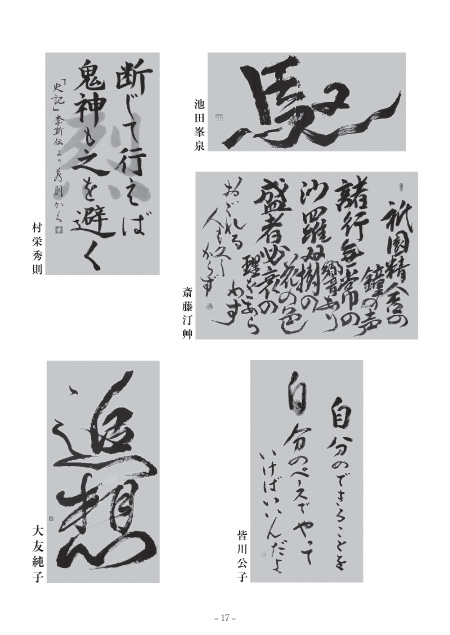 馭
池田峯泉
断じて行えば
鬼神も之を避く
「史記」李斯伝より 秀則かく
村栄秀則
祇園精舎の
鐘の声
諸行無常の
響あり
沙羅双樹の
花の色
盛者必衰の
理をあら
わす
おごれる
人も久しからず
斎藤汀艸
自分のできることを
自分のペースでやって
いけばいいんだよ
皆川公子
追想
大友純子
- 17 -